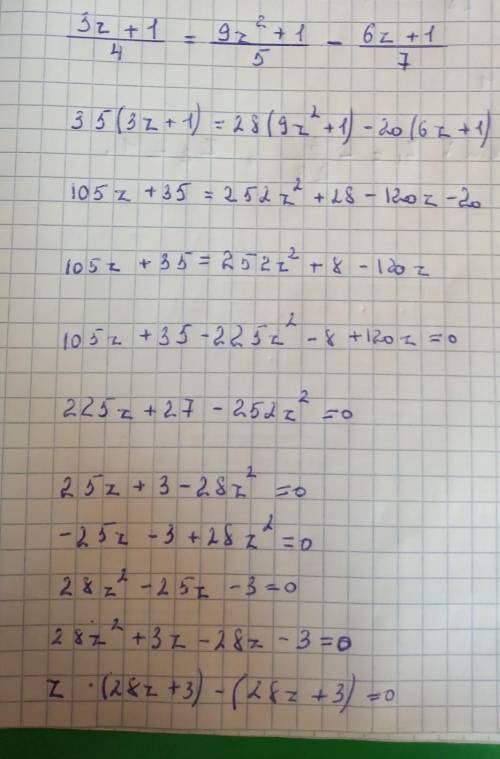 (3z + 1)/4 = (9z² + 1)/5 − (6z + 1)/7
35(3z+1) = 28(9z²+1) − 20(6z+1)
105z + 35 = 252z² + 28 − 120z − 20
105z + 35 = 252z² + 8 − 120z
105z + 35 − 225z² − 8 + 120z = 0
225z + 27 − 252z² = 0
25z + 3 − 28z² = 0
−25z − 3 + 28z² = 0
28z² − 25z − 3 = 0
28z² + 3z − 28z − 3 = 0
z · (28z + 3) − (28z + 3) = 0